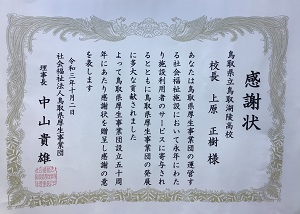 感謝状
鳥取県立鳥取湖陵高校
校長 上原 正樹 様
あなたは鳥取県厚生事業団の運営す
る社会福祉施設において永年にわた
り施設利用者のサービスに寄与され
るとともに鳥取県厚生事業団の発展
に多大な貢献されました
よって鳥取県厚生事業団設立五十周
年にあたり感謝状を贈呈し感謝の意
を表します
令和三年十月二日
社会福祉法人鳥取県厚生事業団
理事長 中山貴雄